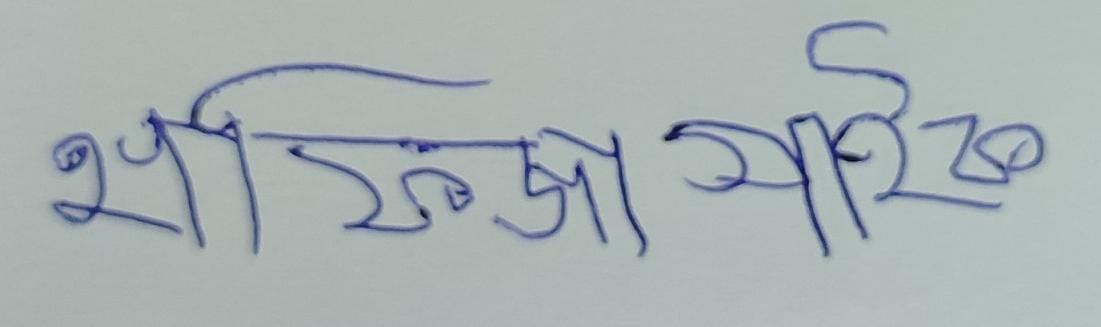 হাফিজা সাইফ